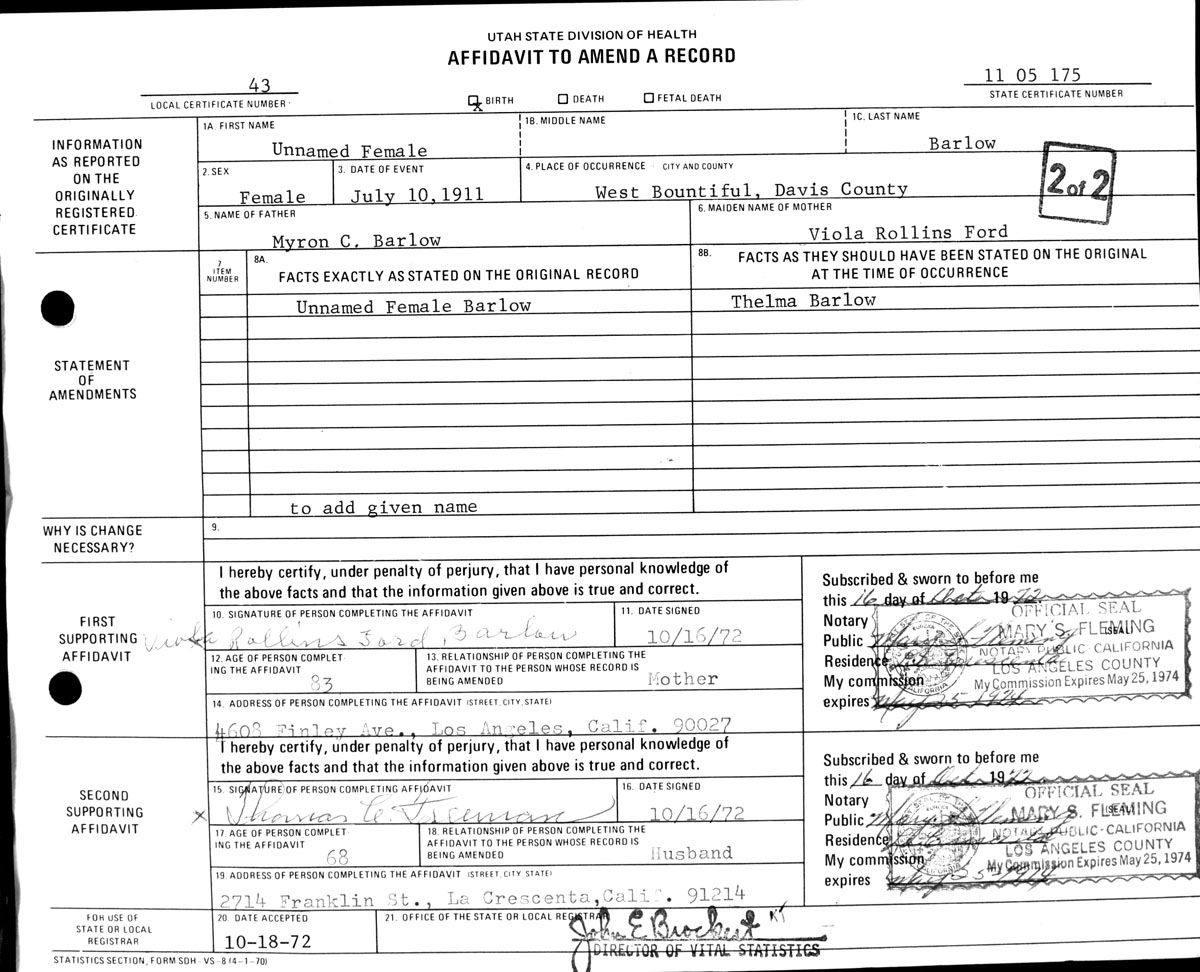 UTAH STATE DIVISION OF HEALTH
AFFIDAVIT TO AMEND A RECORD
43
LOCAL CERTIFICATE NUMBER
X BIRTH DEATH FETAL DEATH
11 05 175
STATE CERTIFICATE NUMBER
INFORMATION
AS REPORTED
ON THE
ORIGINALLY
REGISTERED
CERTIFICATE
1A. FIRST NAME
Unnamed Female
1B. MIDDLE NAME
1C. LAST NAME
Barlow
2. SEX
Female
3. DATE OF EVENT
July 10, 1911
4. PLACE OF OCCURRENCE CITY AND COUNTY
West Bountiful, Davis County
2 of 2
5. NAME OF FATHER
Myron C. Barlow
6. MAIDEN NAME OF MOTHER
Viola Rollins Ford
STATEMENT
OF
AMENDMENTS
7
ITEM
NUMBER
8A.
FACTS EXACTLY AS STATED ON THE ORIGINAL RECORD
8B.
FACTS AS THEY SHOULD HAVE BEEN STATED ON THE ORIGINAL
AT THE TIME OF OCCURRENCE
Unnamed Female Barlow
Thelma Barlow
to add given name
WHY IS CHANGE
NECESSARY?
9.
FIRST
SUPPORTING
AFFIDAVIT
I hereby certify, under penalty of perjury, that I have personal knowledge of
the above facts and that the information given above is true and correct.
10. SIGNATURE OF PERSON COMPLETING THE AFFIDAVIT
Viola Rollins Ford Barlow
11. DATE SIGNED
10/16/72
12. AGE OF PERSON COMPLET-
ING THE AFFIDAVIT
83
13. RELATIONSHIP OF PERSON COMPLETING THE
AFFIDAVIT TO THE PERSON WHOSE RECORD IS
BEING AMENDED
Mother
14. ADDRESS OF PERSON COMPLETING THE AFFIDAVIT (STREET, CITY, STATE)
4608 Finley Ave., Los Angeles, Calif. 90027
Subscribed & sworn to before me
this 16 day of 1972
Notary
Public
Residence
My commission
expires May 25 1974
(SEAL)
OFFICIAL SEAL
MARY S. FLEMING
NOTARY PUBLIC - CALIFORNIA
LOS ANGELES COUNTY
My Commission Expires May 25, 1974
SECOND
SUPPORTING
AFFIDAVIT
I hereby certify, under penalty of perjury, that I have personal knowledge of
the above facts and that the information given above is true and correct.
15. SIGNATURE OF PERSON COMPLETING AFFIDAVIT
x Thomas C.
16. DATE SIGNED
10/16/72
17. AGE OF PERSON COMPLET-
ING THE AFFIDAVIT
68
18. RELATIONSHIP OF PERSON COMPLETING THE
AFFIDAVIT TO THE PERSON WHOSE RECORD IS
BEING AMENDED
Husband
19. ADDRESS OF PERSON COMPLETING THE AFFIDAVIT (STREET, CITY, STATE)
2714 Franklin St., La Crescenta, Calif. 91214
Subscribed & sworn to before me
this 16 day of Oct 1972
Notary
Public
Residence
My commission
expires
(SEAL)
OFFICIAL SEAL
MARY S. FLEMING
NOTARY PUBLIC - CALIFORNIA
LOS ANGELES COUNTY
My Commission Expires May 25, 1974
FOR USE OF
STATE OR LOCAL
REGISTRAR
20. DATE ACCEPTED
10-18-72
21. OFFICE OF THE STATE OR LOCAL REGISTRAR
John E Brockert
DIRECTOR OF VITAL STATISTICS
STATISTICS SECTION, FORM SDH - VS - 8 (4-1-70)